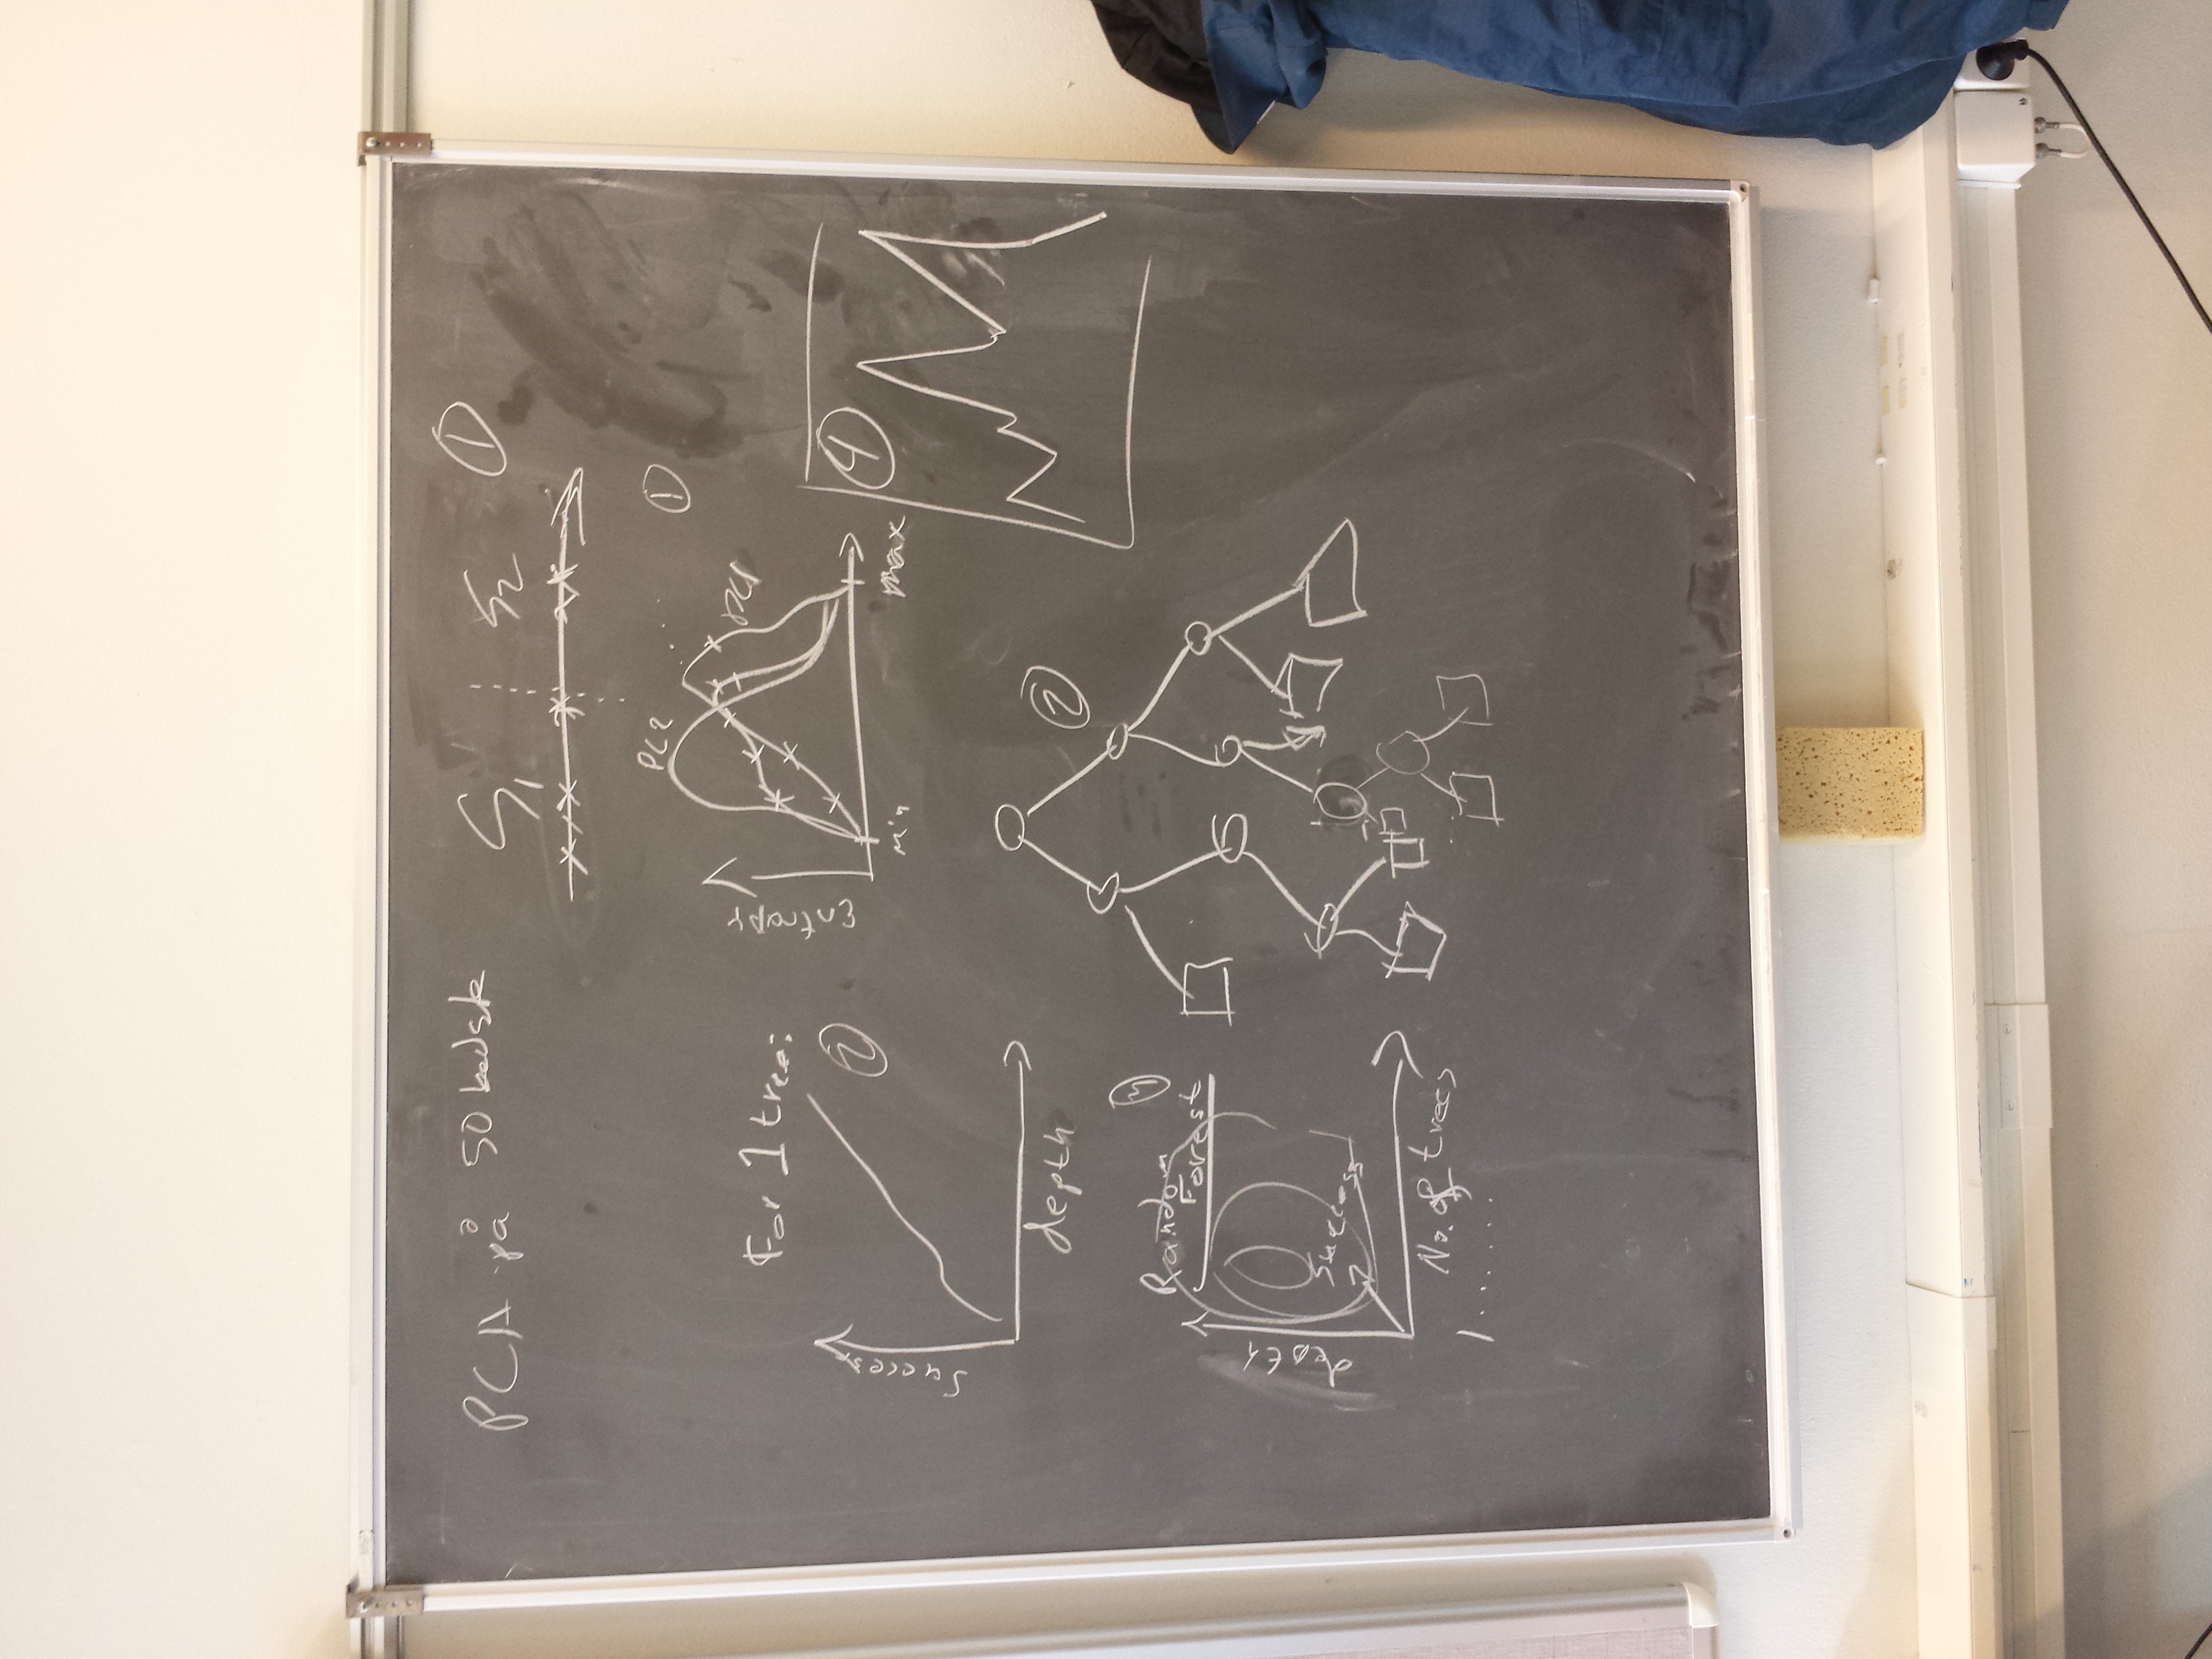 PCA på 50 bedste
S1 S2 1
PC2 1
PC1
Entropy
Min max
For 1 tree:
2
Success
depth
4
2
Random 3
Forest
depth
Success
No. of trees